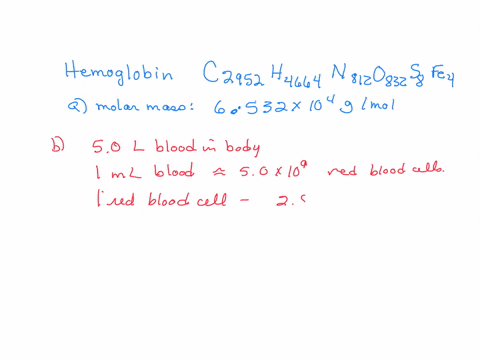 Hemoglobin C2952H4664N812O832S8Fe4
a) molar mass: 6.532 x 10^4 g/mol
b) 5.0 L blood in body
1 mL blood ≈ 5.0 x 10^9 red blood cells.
1 red blood cell -